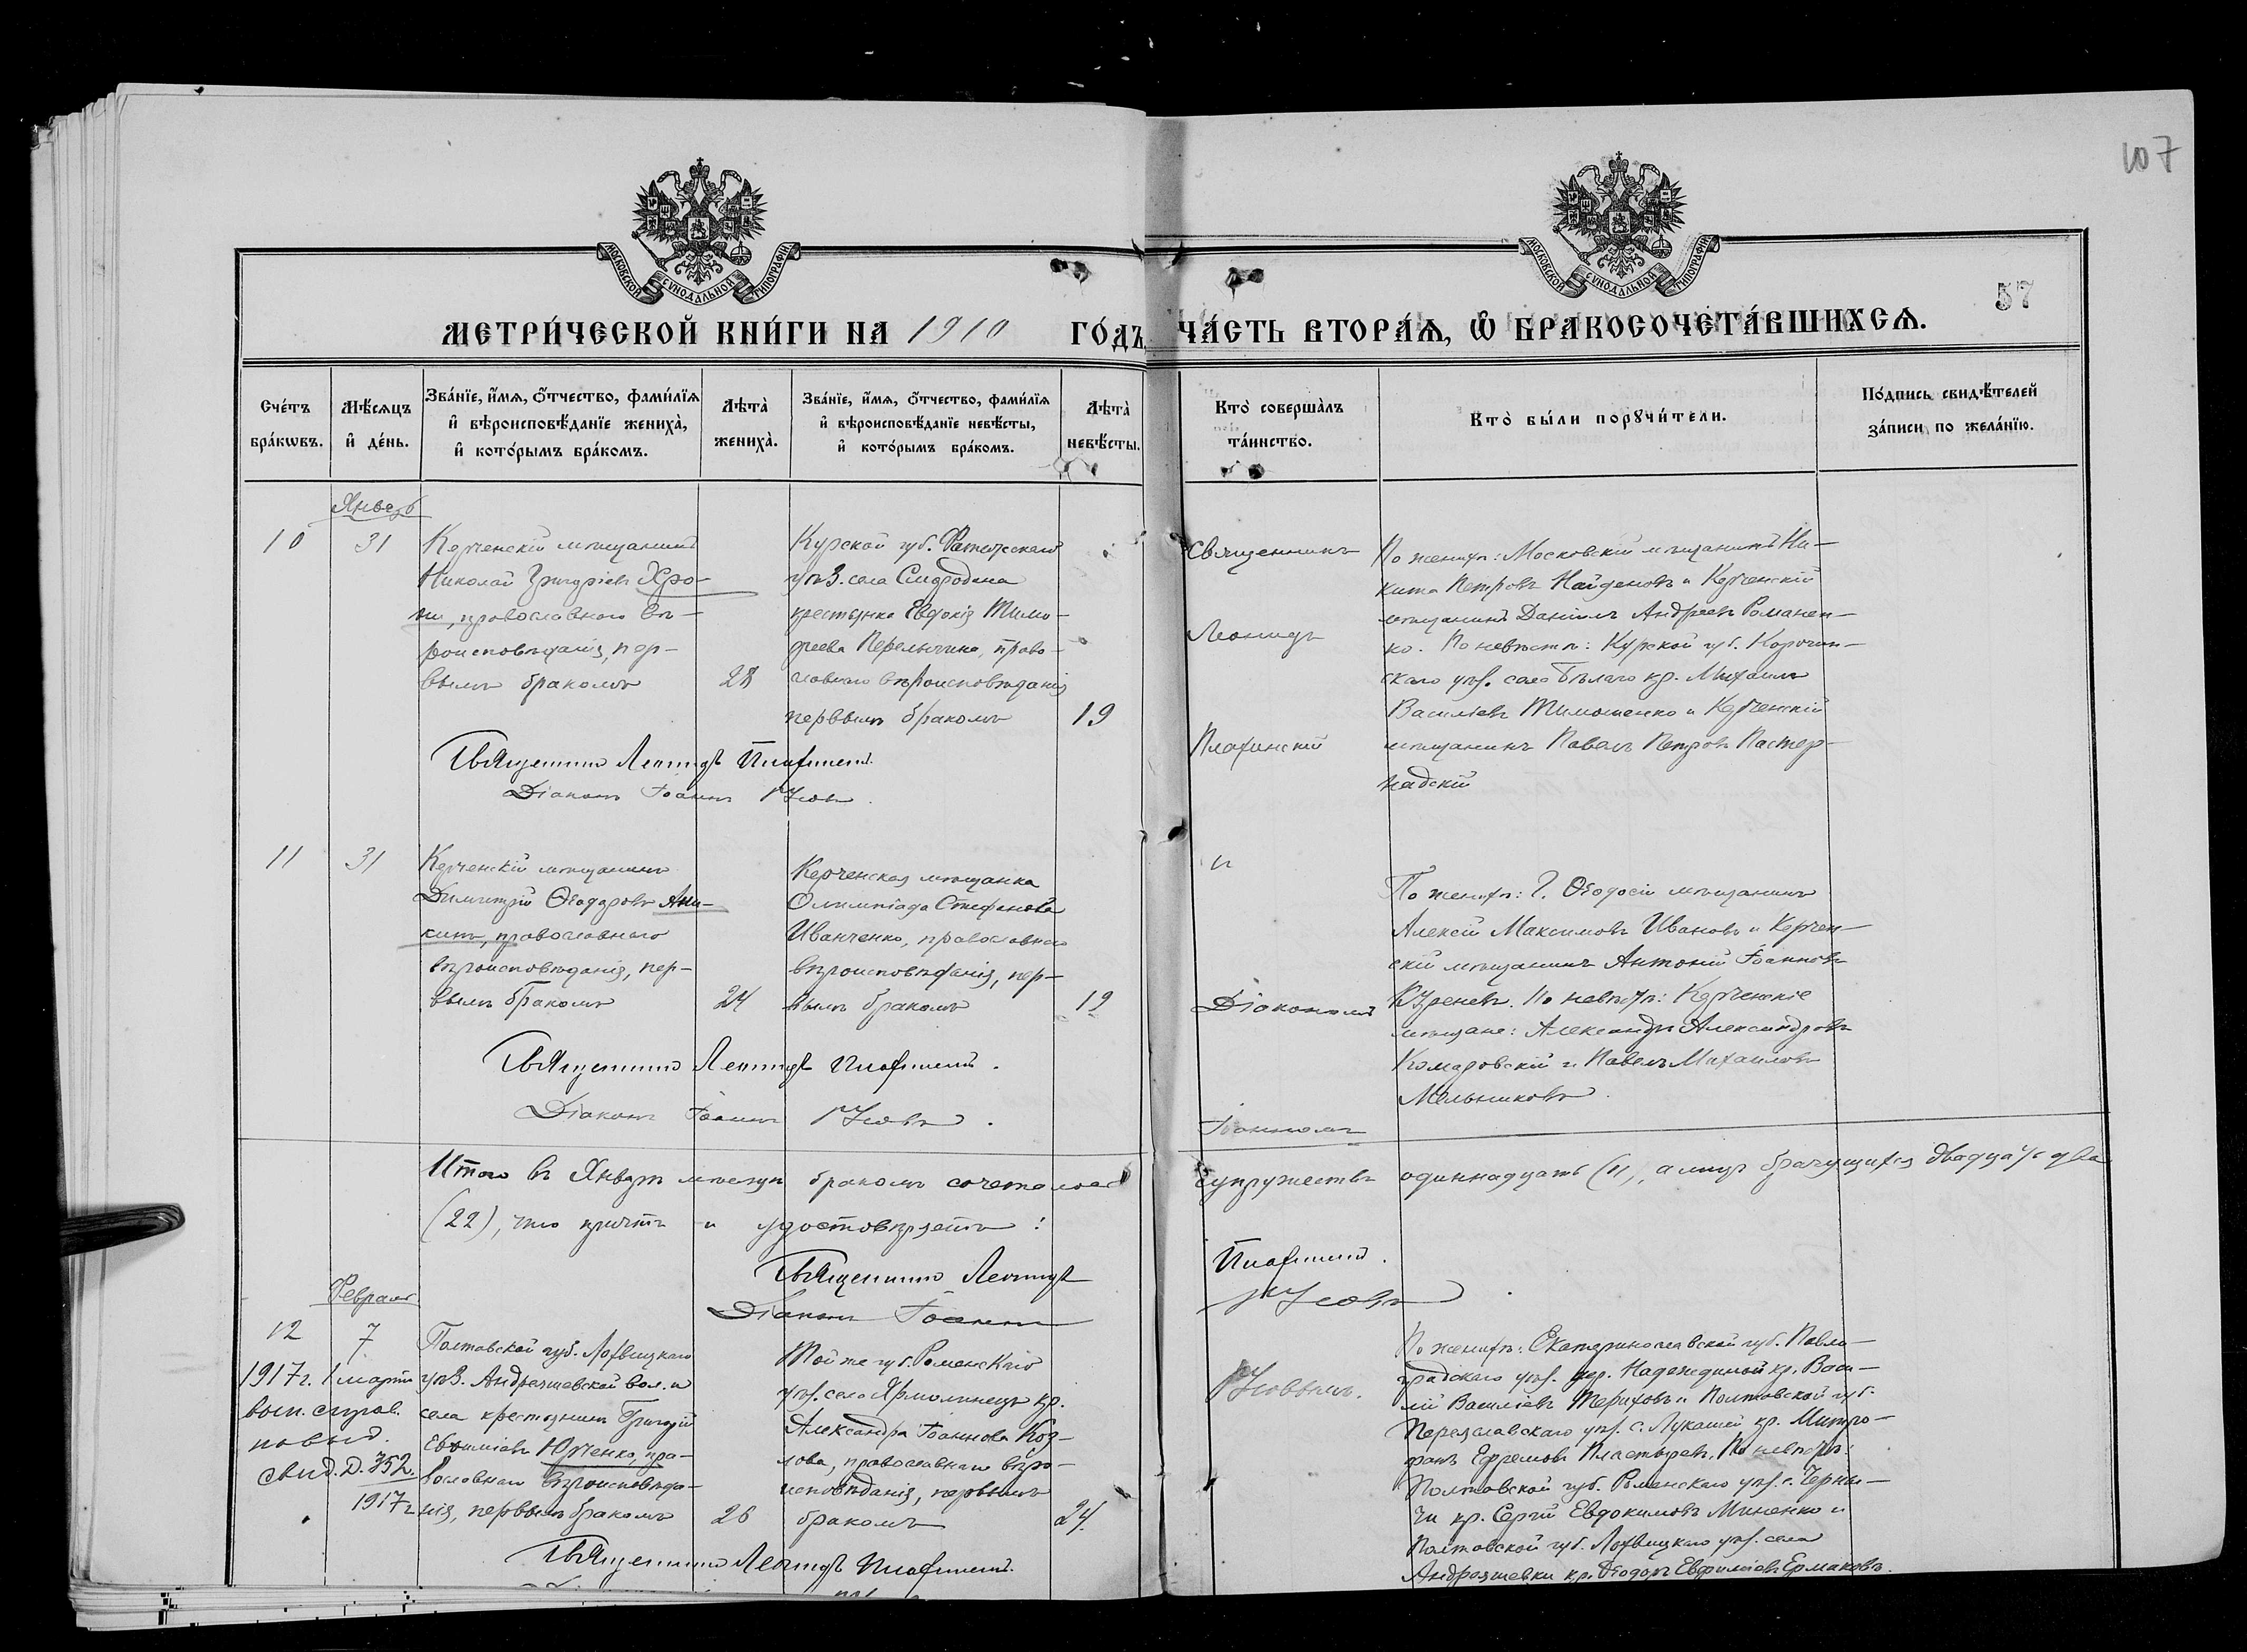 107
МОСКОВСКОЙ СѴНОДАЛЬНОЙ ТИПОГРАФІИ
МОСКОВСКОЙ СѴНОДАЛЬНОЙ ТИПОГРАФІИ
57
МЕТРИ́ЧЕСКОЙ КНИ́ГИ НА 1910 ГО́ДЪ
ЧА́СТЬ ВТОРА́Ѧ, Ѡ БРАКОСОЧЕТА́ВШИХСѦ.
Сче́тъ бра́кѡвъ.
Мѣ́сяцъ и҆ де́нь.
Зва́нїе, и҆́мѧ, ѻ҆́тчество, фами́лїѧ
и҆ вѣроисповѣ́данїе жениха̀,
и҆ кото́рымъ бра́комъ.
Лѣта̀ жениха̀.
Зва́нїе, и҆́мѧ, ѻ҆́тчество, фами́лїѧ
и҆ вѣроисповѣ́данїе невѣ́сты,
и҆ кото́рымъ бра́комъ.
Лѣта̀ невѣ́сты.
Кто̀ соверша́лъ
та́инство.
Кто̀ бы́ли порꙋчи́тели.
По́дпись свидѣ́телей
за́писи по жела́нїю.
Январь
10
31
Керченскій мѣщанинъ
Николай Григоріевъ Хро-
ни, православнаго вѣ-
роисповѣданія, пер-
вымъ бракомъ
28
Курской губ. Фатежскаго
уѣз. села Смородина
крестьянка Евдокія Тимо-
феева Перелыгина, право-
славнаго вѣроисповѣданія
первымъ бракомъ
19
Священникъ
Леонидъ
По женихѣ: Московскій мѣщанинъ Ни-
кита Петровъ Найденовъ и Керченскій
мѣщанинъ Даніилъ Андреевъ Романен-
ко. По невѣстѣ: Курской губ. Корочан-
скаго уѣз. села Бѣлаго кр. Михаилъ
Василіевъ Тимошенко и Керченскій
мѣщанинъ Павелъ Петровъ Пастер-
надскій
Священникъ Леонидъ
Діаконъ Іоаннъ Усовъ.
11
31
Керченскій мѣщанинъ
Димитрій Ѳеодоровъ Ани-
кинъ, православнаго
вѣроисповѣданія, пер-
вымъ бракомъ
24
Керченская мѣщанка
Олимпіада Стефанова
Иванченко, православнаго
вѣроисповѣданія, пер-
вымъ бракомъ
19
и
Діакономъ
Іоанномъ
По женихѣ: Г. Ѳеодосіи мѣщанинъ
Алексій Максимовъ Ивановъ и Керчен-
скій мѣщанинъ Антоній Іоанновъ
По невѣстѣ: Керченскіе
мѣщане: Александръ Александровъ
Комаровскій и Павелъ Михаиловъ
Мельниковъ
Священникъ Леонидъ
Діаконъ Іоаннъ Усовъ.
Итого въ Январѣ мѣсяцѣ бракомъ сочеталось супружествъ одиннадцать (11), а лицъ брачущихся двадцать два
(22), что причтъ и удостовѣряетъ:
Священникъ Леонидъ
Діаконъ Іоаннъ Усовъ.
Февраль
12
7
1917 г. 1 марта
вып. справ.
свид. Д. 352.
1917 г
Полтавской губ. Лохвицкаго
уѣз. Андреяшевской вол. и
села крестьянинъ Григорій
Евѳиміевъ Юрченко, пра-
вославнаго вѣроисповѣда-
нія, первымъ бракомъ
26
Той же губ. Роменскаго
уѣз. села Ярмолинецъ кр.
Александра Іоаннова Коз-
лова, православнаго вѣро-
исповѣданія, первымъ
бракомъ
24.
Усовымъ.
По женихѣ: Екатеринославской губ. Павло-
градскаго уѣз. дер. Надеждиной кр. Васи-
лій Василіевъ Териховъ и Полтавской губ.
Переяславскаго уѣз. с. Лукашей кр. Митро-
фанъ Ефремовъ Пластыревъ. По невѣстѣ:
Полтавской губ. Роменскаго уѣз. с. Черне-
чи кр. Сергій Евдокимовъ Миненко и
Полтавской губ. Лохвицкаго уѣз. села
Андреяшевки кр. Ѳеодоръ Евѳиміевъ Ермаковъ.
Священникъ Леонидъ